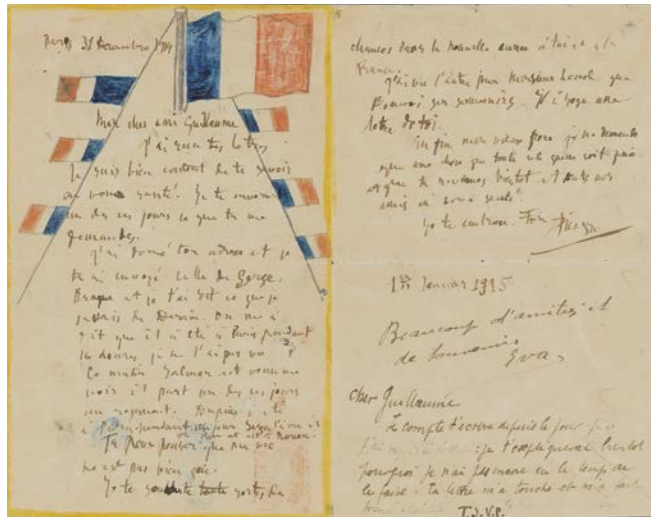 Paris 31 Decembre 1914
Mon cher ami Guillaume
J'ai reçu ta lettre
Je suis bien content de te savoir
en bonne santé. Je te
un de ces jours ce que tu me
demandes.
J'ai donné ton adresse et je
te ai envoyé celle de George
Braque et je t'ai dit ce que je
savais de Derain. On me a
dit que il a eté à Paris pendant
heures, je ne l'ai pas vu
Ce matin Salmon est venu me
voir il part un de ces jours
au regiment. Depuis
pendant
Tu peux penser que ma vie
ne est pas bien gaie.
Je te souhaite toute sortes de
chances dans la nouvelle année à toi et a la
France.
J'ai vu l'autre jour Monsieur que
pour souvenirs. Il a reçu une
lettre de toi.
En fin mon vieux frere je ne demande
que une chose que toute cette guerre soit finie
et que tu revienes bientot et toute nos
amis en bone santé
Je te embrase. Ton Picasso
1er Janvier 1915
Beaucoup d'amitiés et
de Souvenirs
Eva
Cher Guillaume
Je compte t'ecrire depuis le jour
je t'expliquerai bientot
pourquoi je n'ai pas encore eu le temps de
le faire. Ta lettre m'a touché et m'a fait
T.S.V.P.